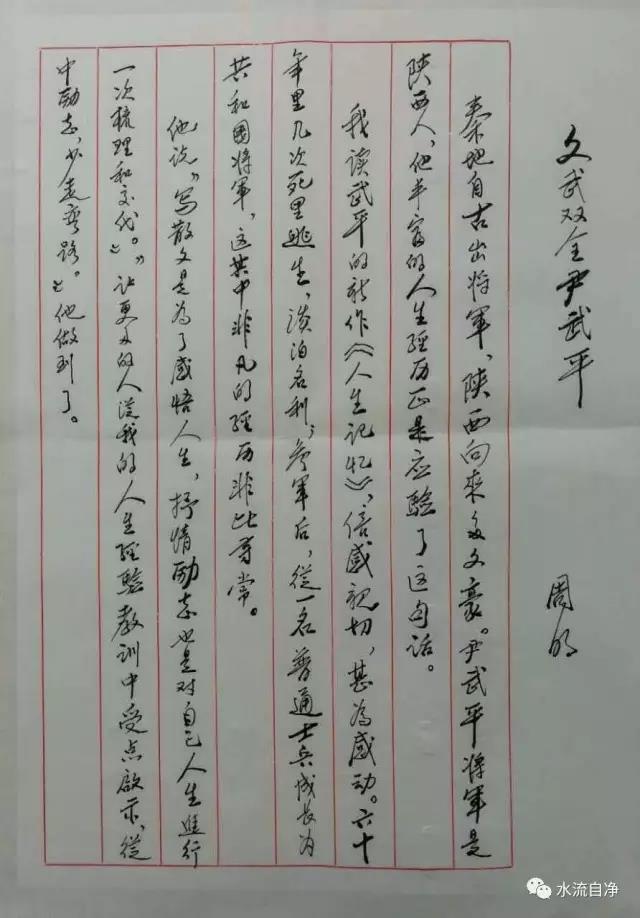 文武双全尹武平
周明
秦地自古出将軍，陕西向來多文豪。尹武平将軍是
陕西人，他丰富的人生經历正是应驗了这句话。
我读武平的新作《人生记忆》，倍感親切，甚為感动。六十
年里几次死里逃生，淡泊名利，参軍后，從一名普通士兵成长为
共和國将軍，这其中非凡的經历非比寻常。
他说，“写散文是為了感悟人生，抒情励志也是对自己人生進行
一次梳理和交代。”“让更多的人從我的人生經驗教训中受点啟示，從
中励志，少走弯路。”他做到了。
水流自净